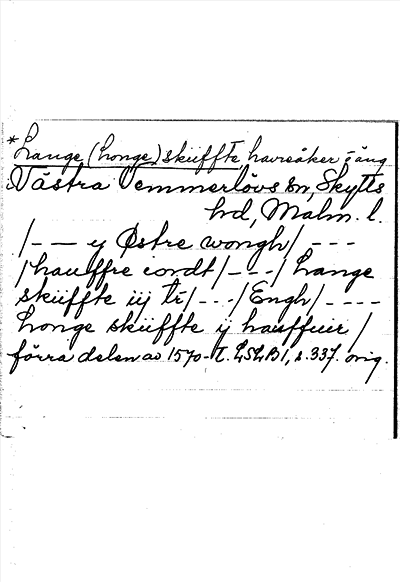 * Lange (Longe) skiiffte, havreåker o äng
Västra Vemmerlövs sn, Skytts
hd, Malm. l.
/--- y Østre wongh/ ---
/hauffre iordt/---/Lange
skiiffte iij tr/---/Engh/----
Longe skiiffte ij hauffuir /
förra delen av 1570-t. LSLB 1, s. 337. orig.